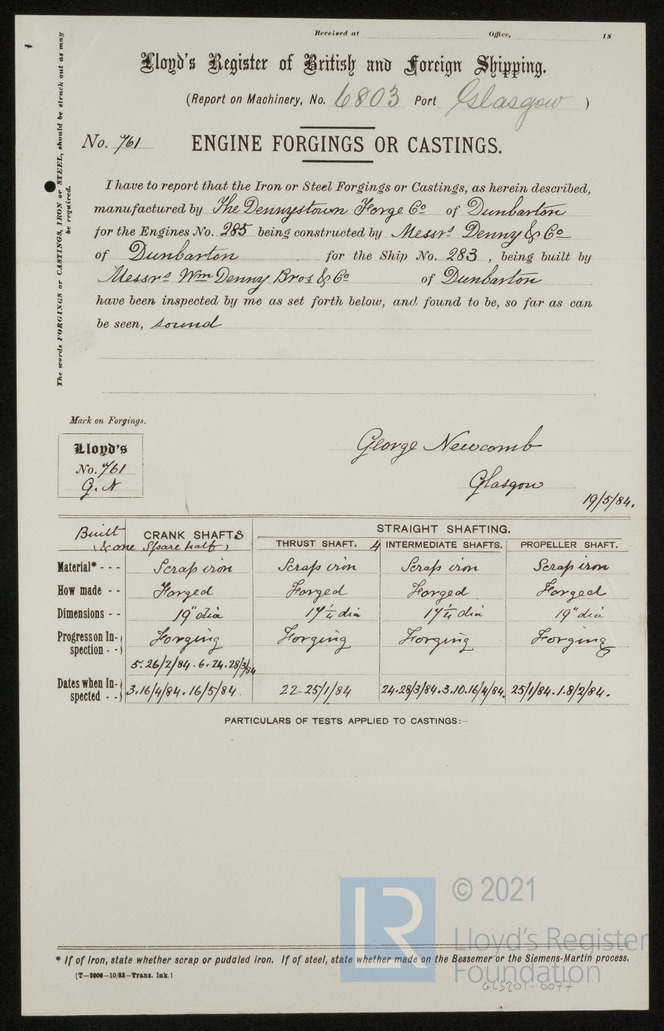 Received at Office, 18
Lloyd's Register of British and Foreign Shipping.
(Report on Machinery, No. 6803 Port Glasgow)
The words FORGINGS or CASTINGS, IRON or STEEL, should be struck out as may be required.
No. 761 ENGINE FORGINGS OR CASTINGS.
I have to report that the Iron or Steel Forgings or Castings, as herein described,
manufactured by The Dennystown Forge Co of Dunbarton
for the Engines No. 285 being constructed by Messrs Denny & Co
of Dunbarton for the Ship No. 283, being built by
Messrs Wm Denny Bros & Co of Dunbarton
have been inspected by me as set forth below, and found to be, so far as can
be seen, sound
Mark on Forgings.
Lloyd's
No. 761
G. N
George Newcomb
Glasgow
19/5/84.
Built CRANK SHAFTS STRAIGHT SHAFTING.
(& one Spare half) THRUST SHAFT. 4 INTERMEDIATE SHAFTS. PROPELLER SHAFT.
Material* - - - Scrap iron Scrap iron Scrap iron Scrap iron
How made - - Forged Forged Forged Forged
Dimensions - - 19" dia 17¼ dia 17¼ dia 19" dia
Progress on In-spection - - Forging Forging Forging Forging
5. 26/2/84. 6. 24. 28/3/84
Dates when In-spected - - 3. 16/4/84. 16/5/84. 22-25/1/84 24.28/3/84. 3.10.16/4/84. 25/1/84. 1.8/2/84.
PARTICULARS OF TESTS APPLIED TO CASTINGS:-
© 2021
LR
Lloyd's Register
Foundation
* If of iron, state whether scrap or pudaled iron. If of steel, state whether made on the Bessemer or the Siemens-Martin process.
[T-5006-10/83-Trans. Ink.]
GLS201-0077